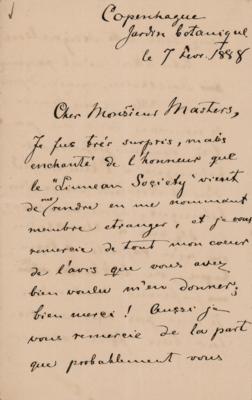 Copenhague
Jardin botanique
le 7 Févr. 1888
Cher Monsieur Masters,
Je fus très surpris, mais
enchanté de l'honneur que
le "Linnean Society" vient
de me rendre en me nommant
membre etranger, et je vous
remercie de tout mon coeur
de l'avis que vous avez
bien voulu m'en donner;
bien merci! Aussi je
vous remercie de la part
que probablement vous